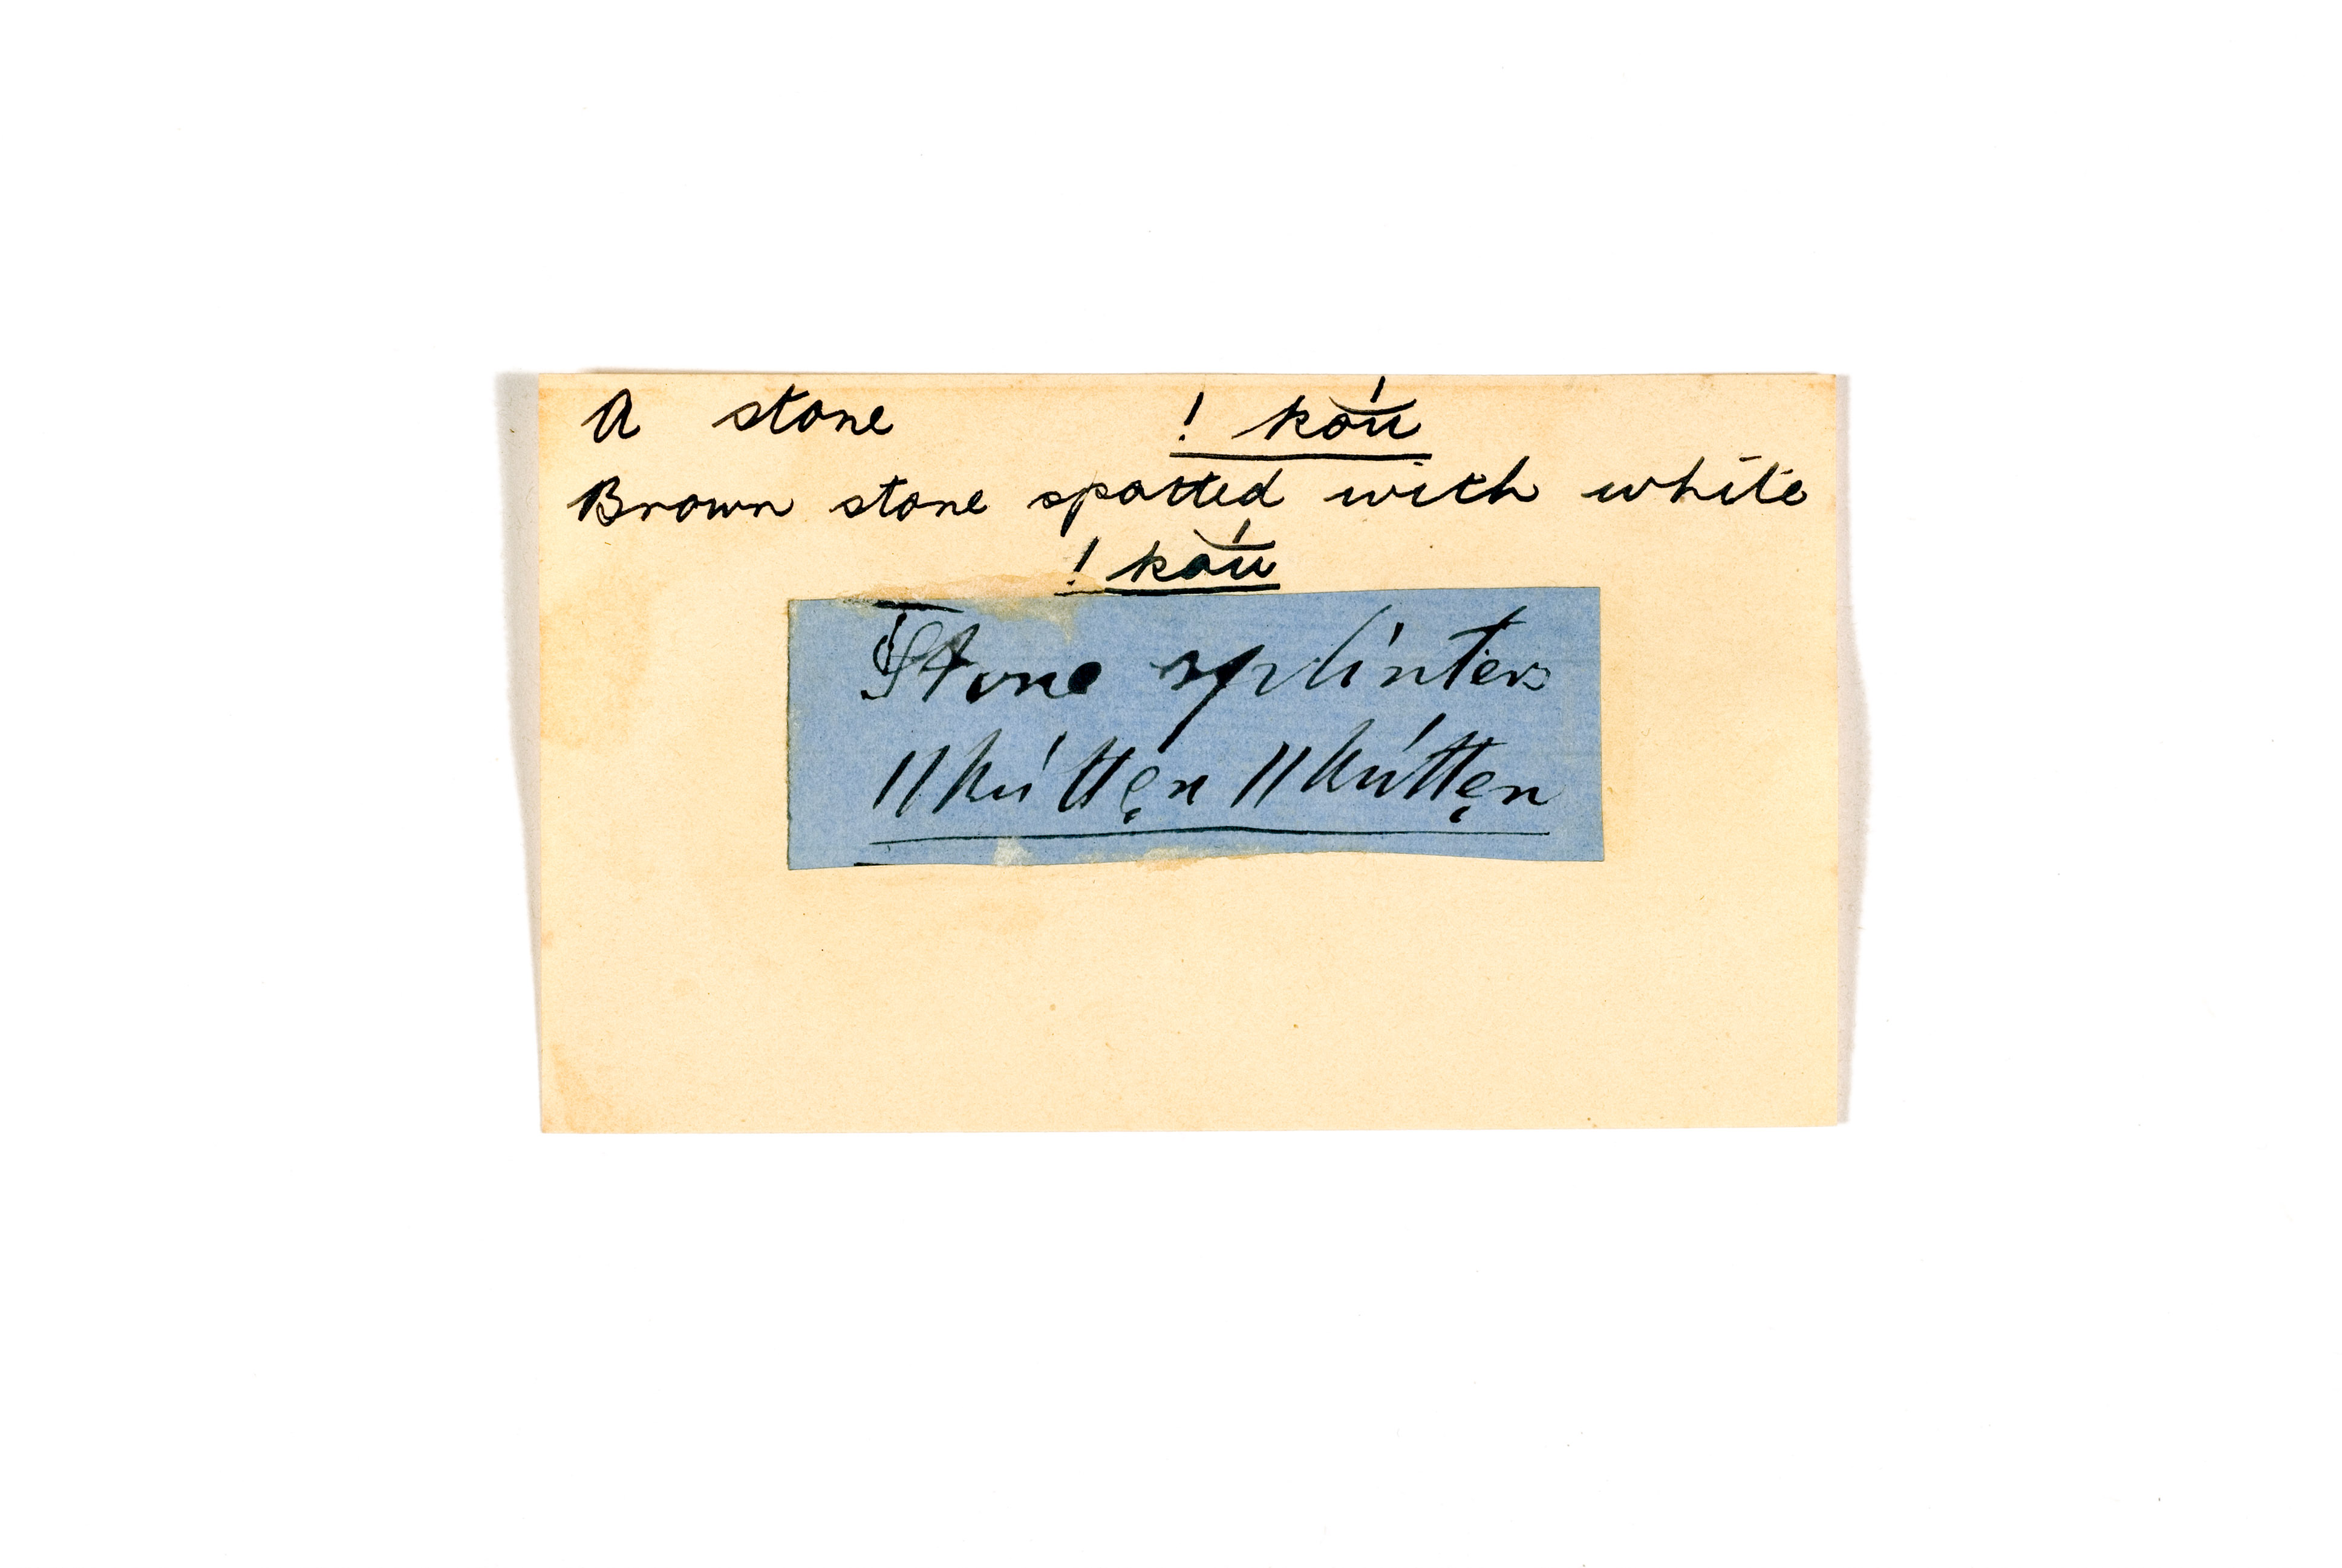 A stone ! ko͝ú
Brown stone spotted with white
! ko͝ú
Stone splinters
||kúttęn ||kúttęn